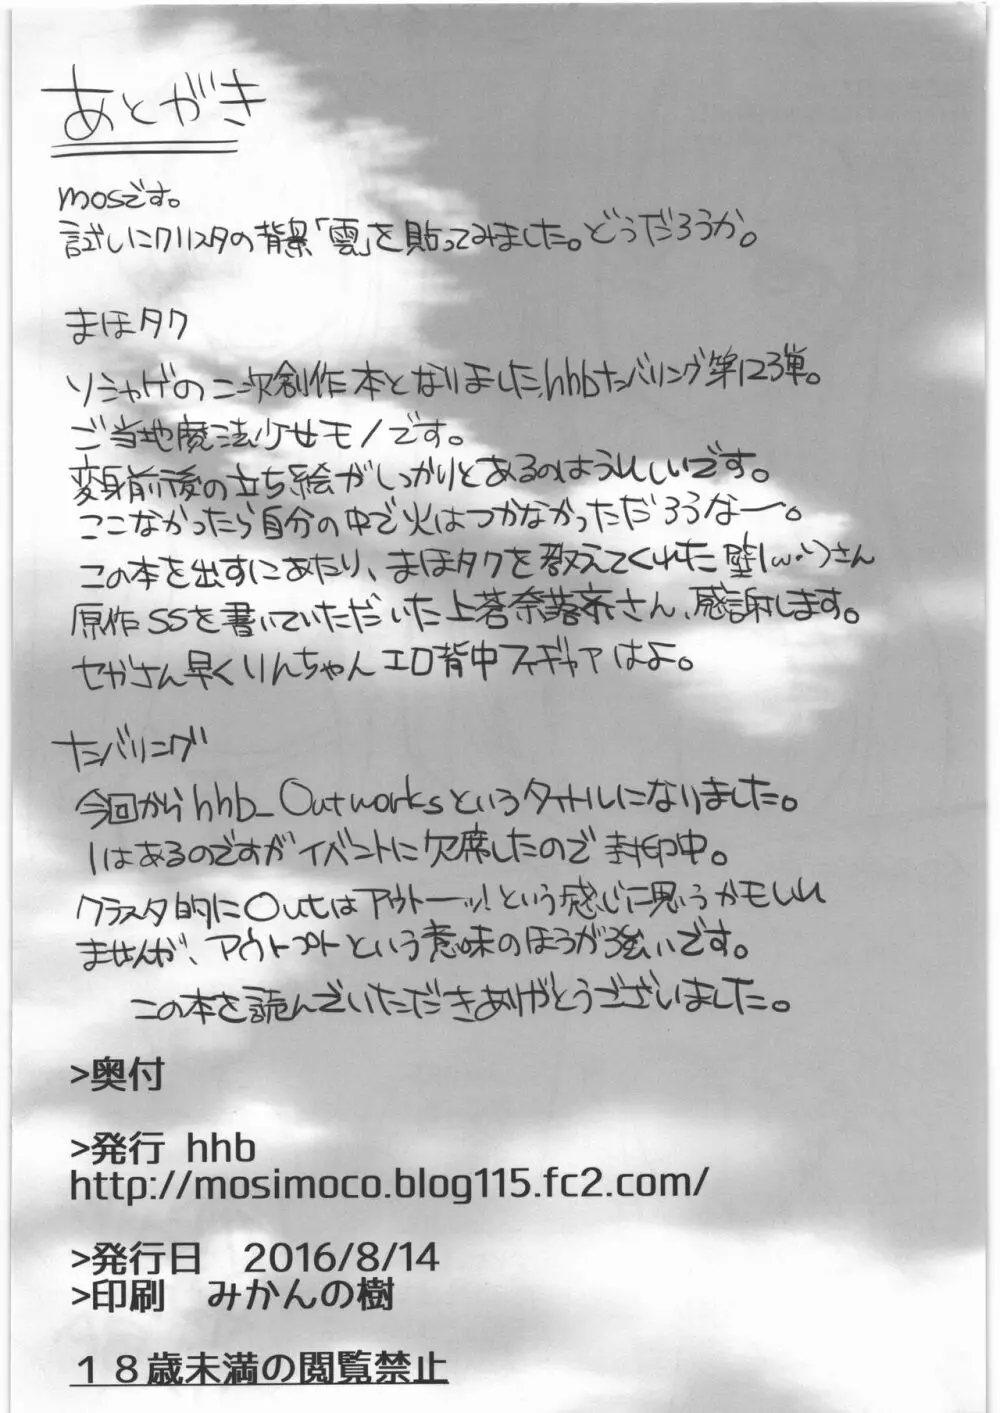 あとがき
mosです。
試しにクリスタの背景「雲」を貼ってみました。どうだろうか。
まほタク
ソシャゲの二次創作本となりました、hhbナンバリング第123弾。
ご当地魔法少女モノです。
変身前後の立ち絵がしっかりとあるのはうれしいです。
ここなかったら自分の中で火はつかなかっただろうなー。
この本を出すにあたり、まほタクを教えてくれた壁|ω・)さん
原作SSを書いていただいた上蒼奈落茶さん、感謝します。
セガさん早くりんちゃんエロ背中フィギャアはよ。
ナンバリング
今回からhhb_Outworksというタイトルになりました。
1はあるのですがイベントに欠席したので封印中。
クラスタ的にOutはアウトーッ!という感じに思うかもしれ
ませんが、アウトプットという意味のほうが強いです。
この本を読んでいただきありがとうございました。
>奥付
>発行 hhb
http://mosimoco.blog115.fc2.com/
>発行日 2016/8/14
>印刷 みかんの樹
18歳未満の閲覧禁止